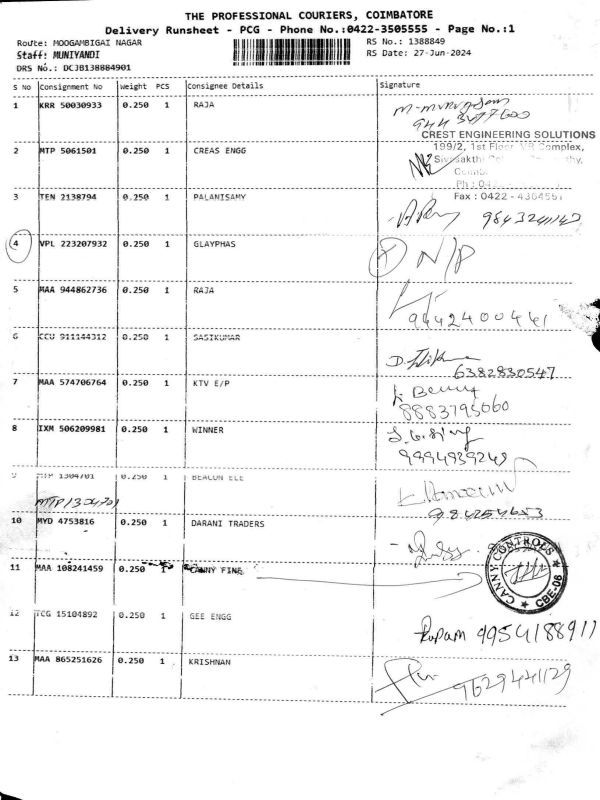 THE PROFESSIONAL COURIERS, COIMBATORE
Delivery Runsheet - PCG - Phone No.:0422-3505555 - Page No.:1
Route: MOOGAMBIGAI NAGAR
RS No.: 1388849
Staff: MUNIYANDI
RS Date: 27-Jun-2024
DRS No.: DCJB138884901
S No Consignment No Weight PCS Consignee Details Signature
1 KRR 50030933 0.250 1 RAJA
CREST ENGINEERING SOLUTIONS
199/2, 1st Floor, VR Complex,
2 MTP 5061501 0.250 1 CREAS ENGG
Fax : 0422 - 4364551
3 TEN 2138794 0.250 1 PALANISAMY
9843241147
4 VPL 223207932 0.250 1 GLAYPHAS N/P
5 MAA 944862736 0.250 1 RAJA
9442400441
6 CCU 911144312 0.250 1 SASIKUMAR
6382830547
7 MAA 574706764 0.250 1 KTV E/P
8883793660
8 IXM 506209981 0.250 1 WINNER
9994939249
9 MTP 1304701 0.250 1 BEACON ELE
MTP 1304701
10 MYD 4753816 0.250 1 DARANI TRADERS
11 MAA 108241459 0.250 1 CANNY FINE
CANNY CONTROLS ★ CBE-06 ★
12 TCG 15104892 0.250 1 GEE ENGG
Rupam 9954188911
13 MAA 865251626 0.250 1 KRISHNAN
9629441129